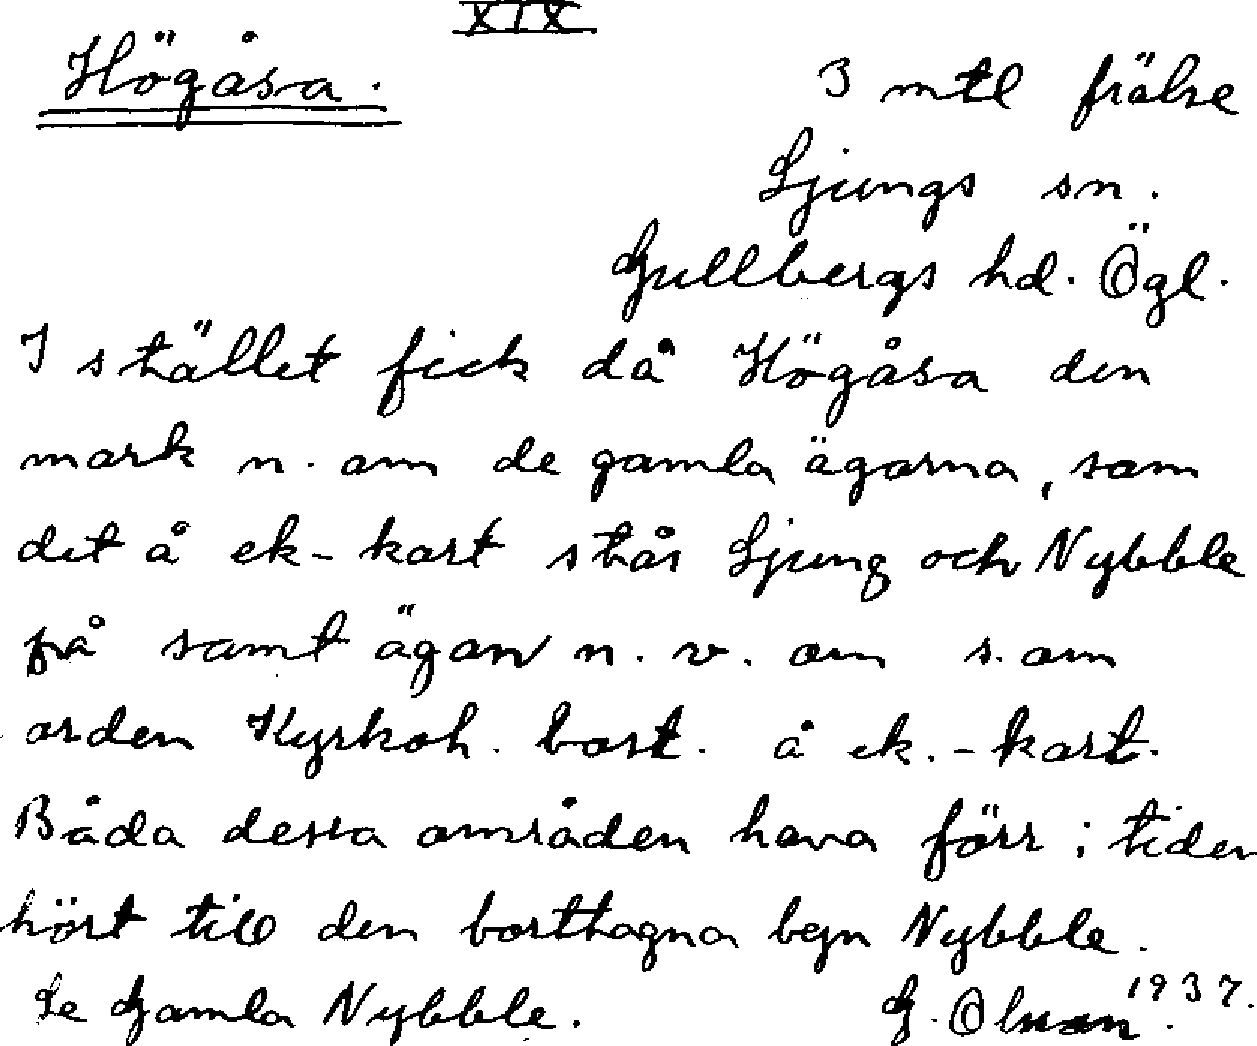 XIX
Högåsa.
3 mtl frälse
Ljungs sn.
Gullbergs hd. Ögl.
I stället fick då Högåsa den
mark n. om de gamla ägorna, som
det å ek-kart står Ljung och Nybble
på samt ägan n. v. om s. om
orden Kyrkoh. bost. å ek.-kart.
Båda dessa områden hava förr i tiden
hört till den borttagna byn Nybble.
Se Gamla Nybble.
G. Olsson. 1937.